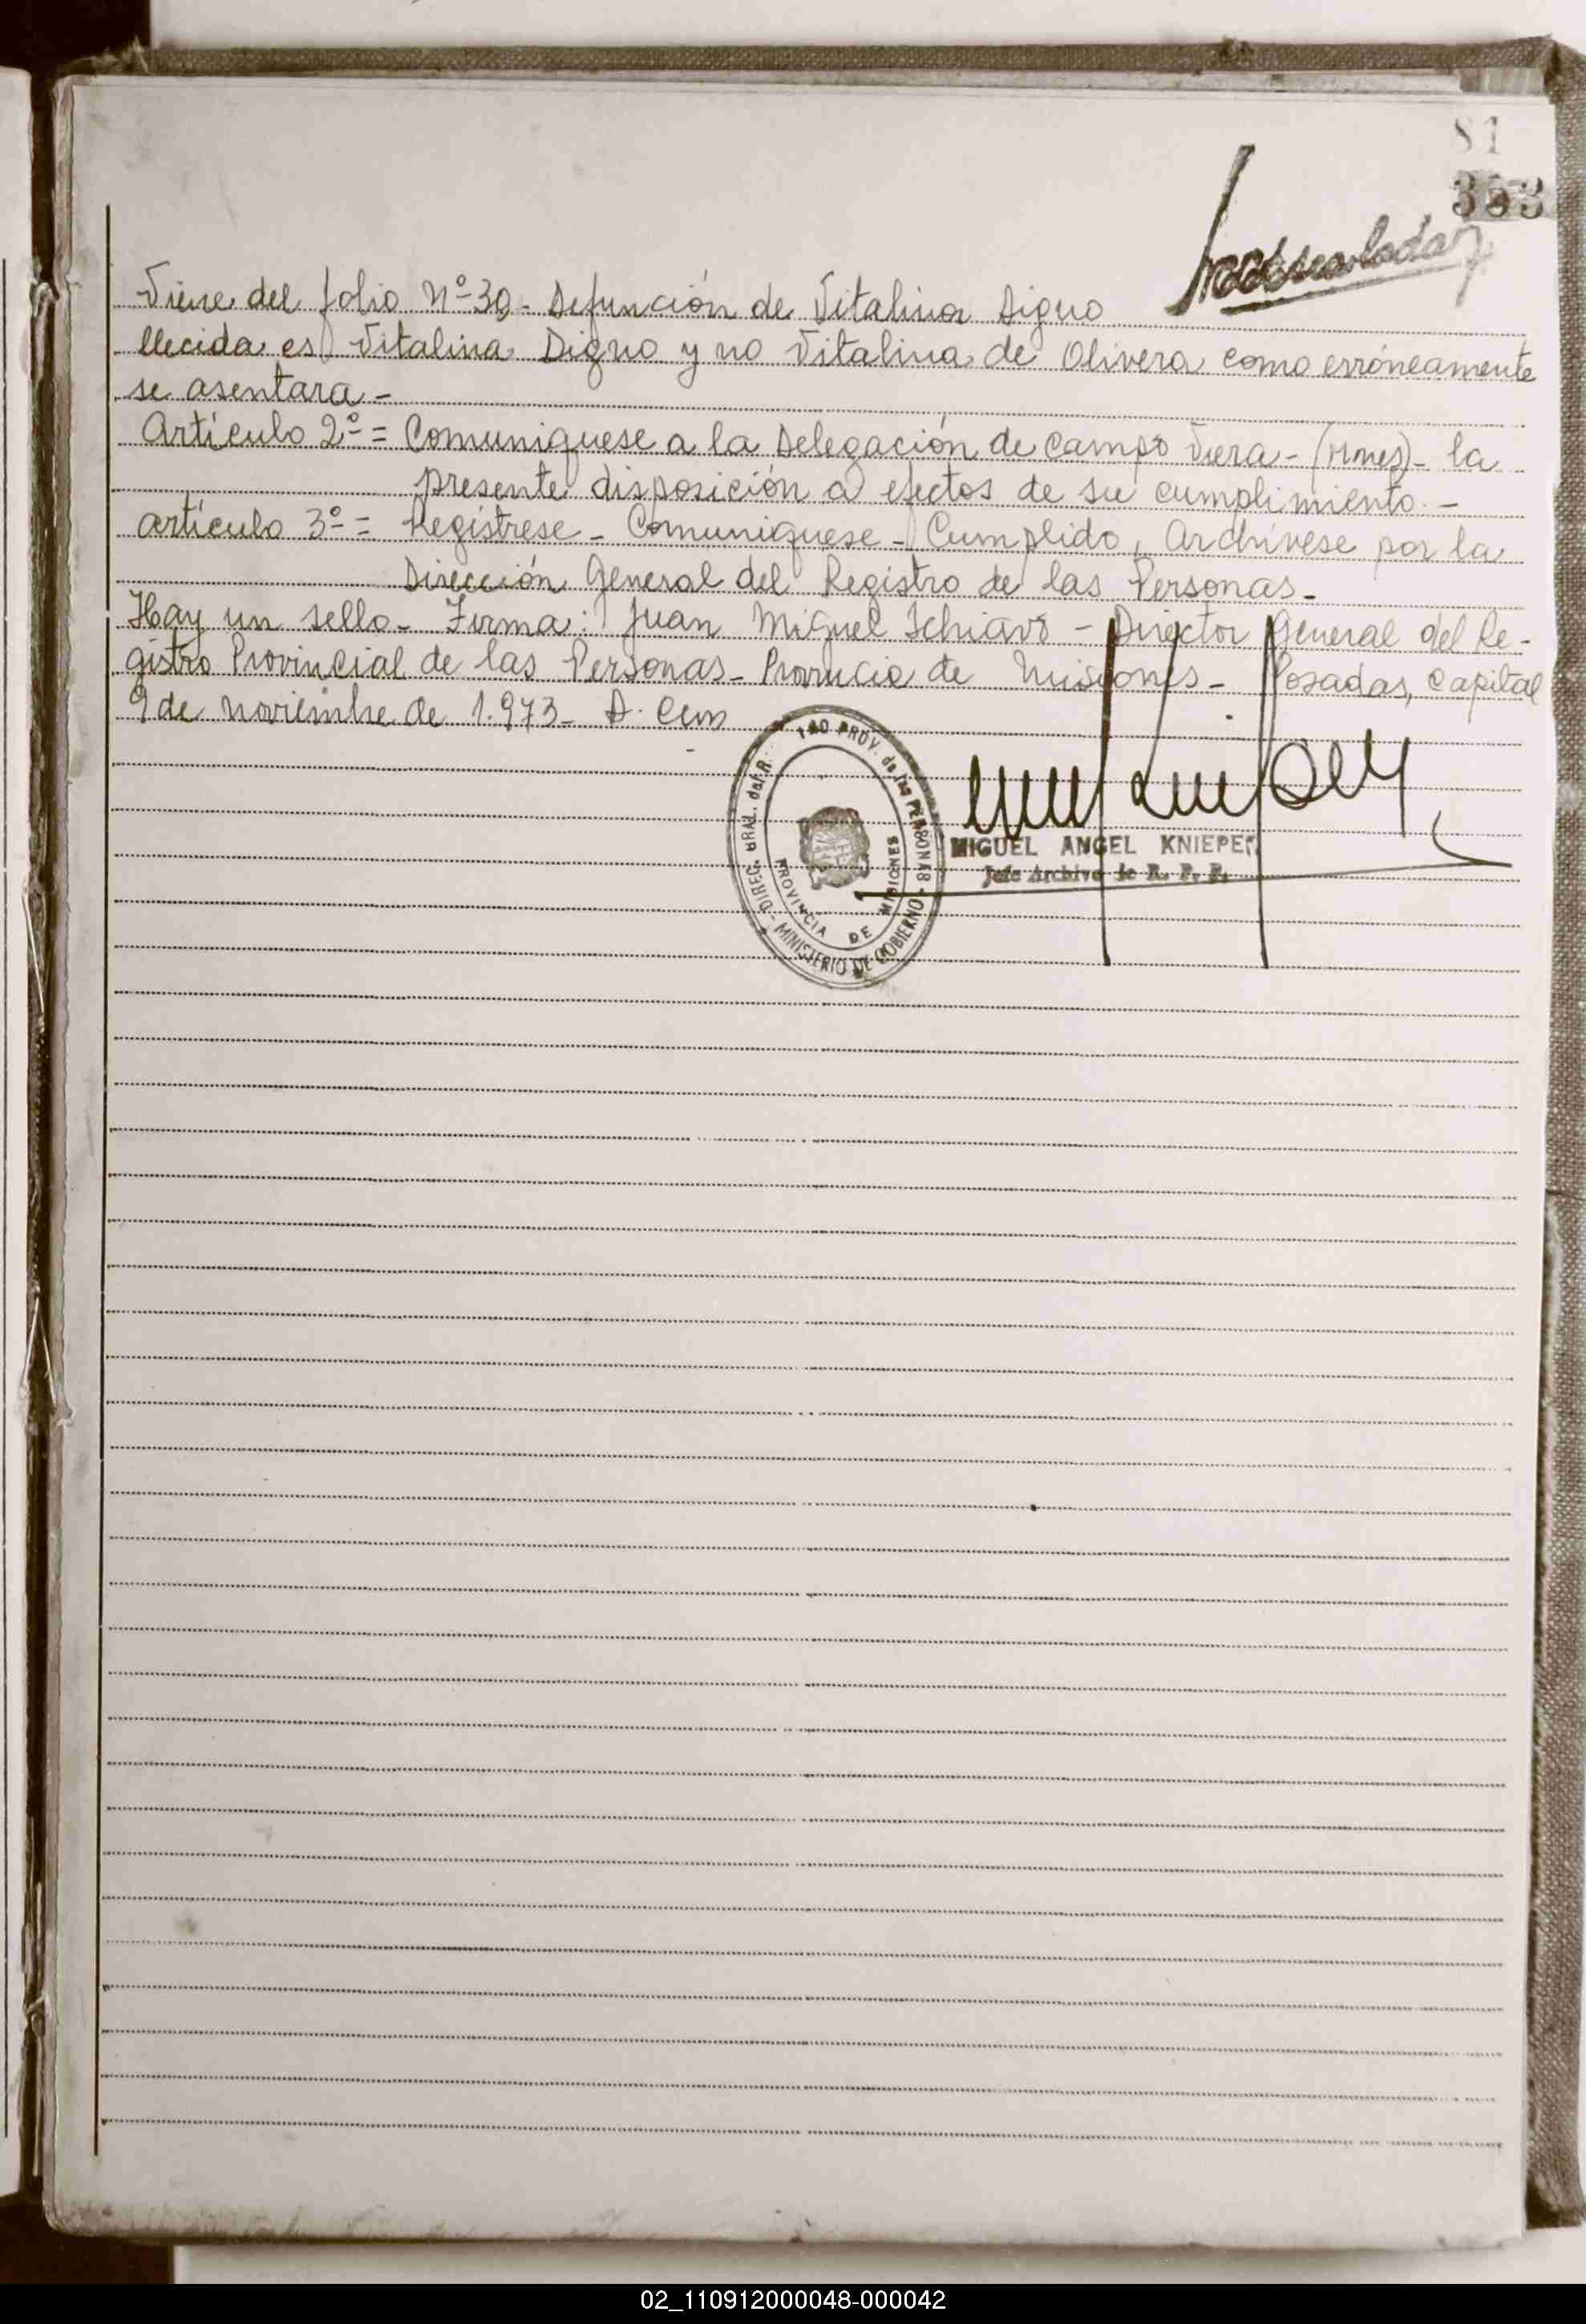 81
353
Viene del folio Nº 30 - Defunción de Vitalina Digno
llecida es Vitalina Digno y no Vitalina de Olivera como erróneamente
se asentara -
Artículo 2º = Comuniquese a la Delegación de Campo Viera - (Mnes) - la
presente disposición a efectos de su cumplimiento. -
Artículo 3º = Regístrese - Comuníquese - Cumplido, Archívese por la
Dirección General del Registro de las Personas -
Hay un sello - Firma: Juan Miguel Schiavo - Director General del Re-
gistro Provincial de las Personas - Provincia de Misiones - Posadas, Capital
9 de noviembre de 1.973 -
DIREC. GRAL. del R. PROV. de las PERSONAS - MINISTERIO DE GOBIERNO -
PROVINCIA DE MISIONES
MIGUEL ANGEL KNIEPER
Jefe Archivo de R. P. P.
02_110912000048-000042